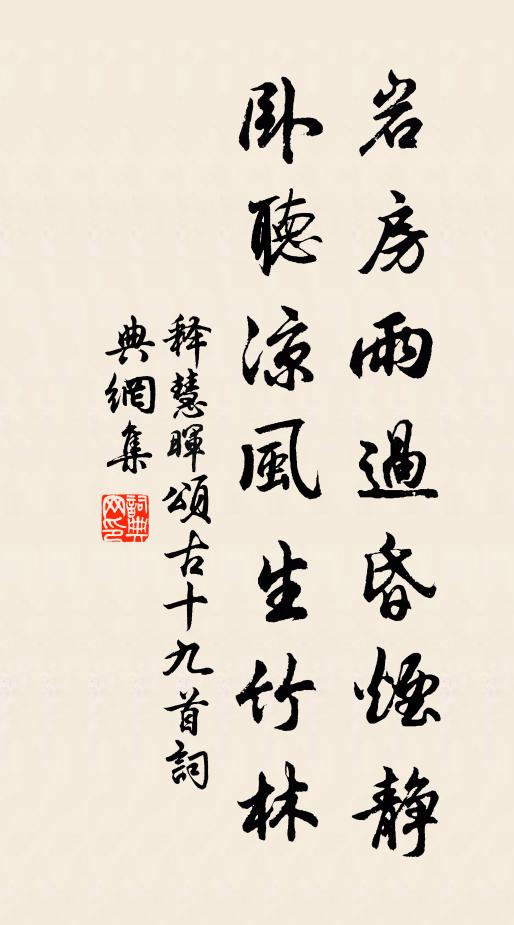 岩房雨過昏煙静
卧聽凉風生竹林
释慧暉頌古十九首詞
典網集
詞典
网印